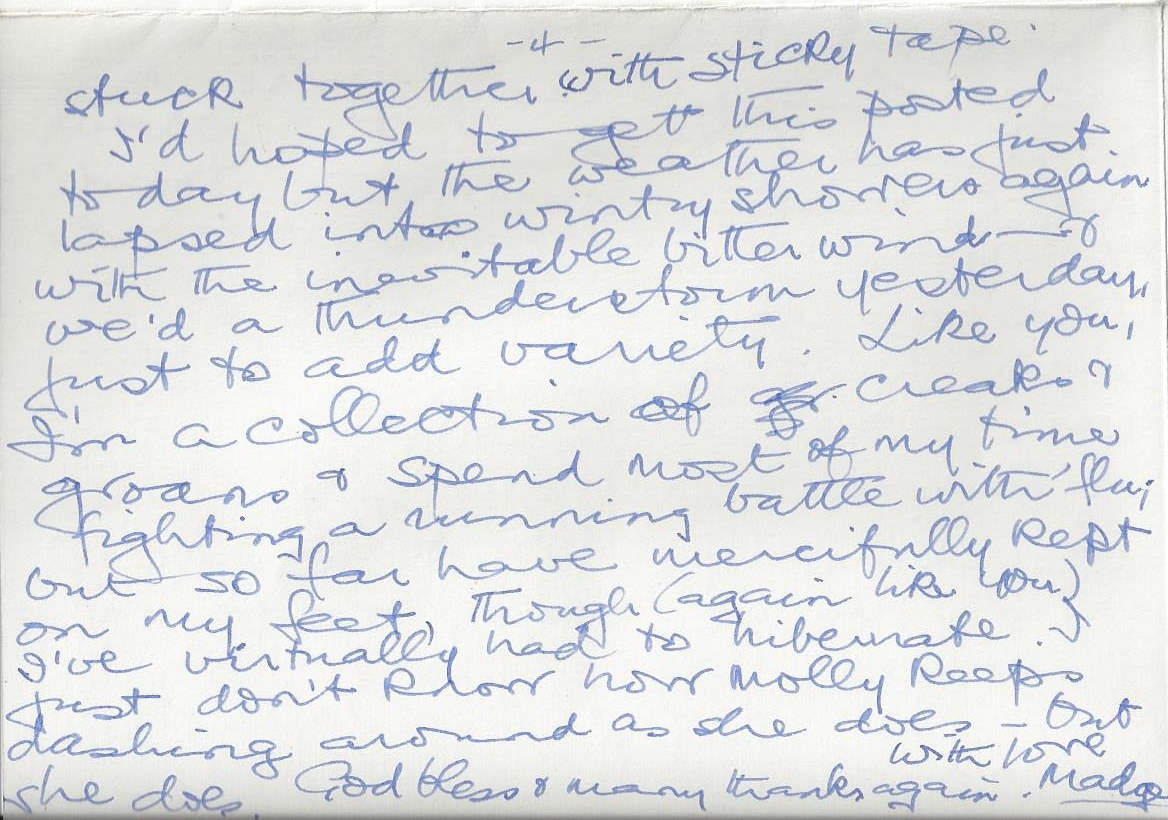 -4-
stuck together with sticky tape.
I'd hoped to get this posted
today but the weather has just
lapsed into wintry showers again
with the inevitable bitter wind — &
we'd a thunderstorm yesterday,
just to add variety. Like you,
I'm a collection of creaks &
groans & spend most of my time
fighting a running battle with 'flu;
but so far have mercifully kept
on my feet, though (again like you)
I've virtually had to hibernate. I
just don't know how Molly keeps
dashing around as she does — but
she does. God bless & many thanks again. with love
Madge